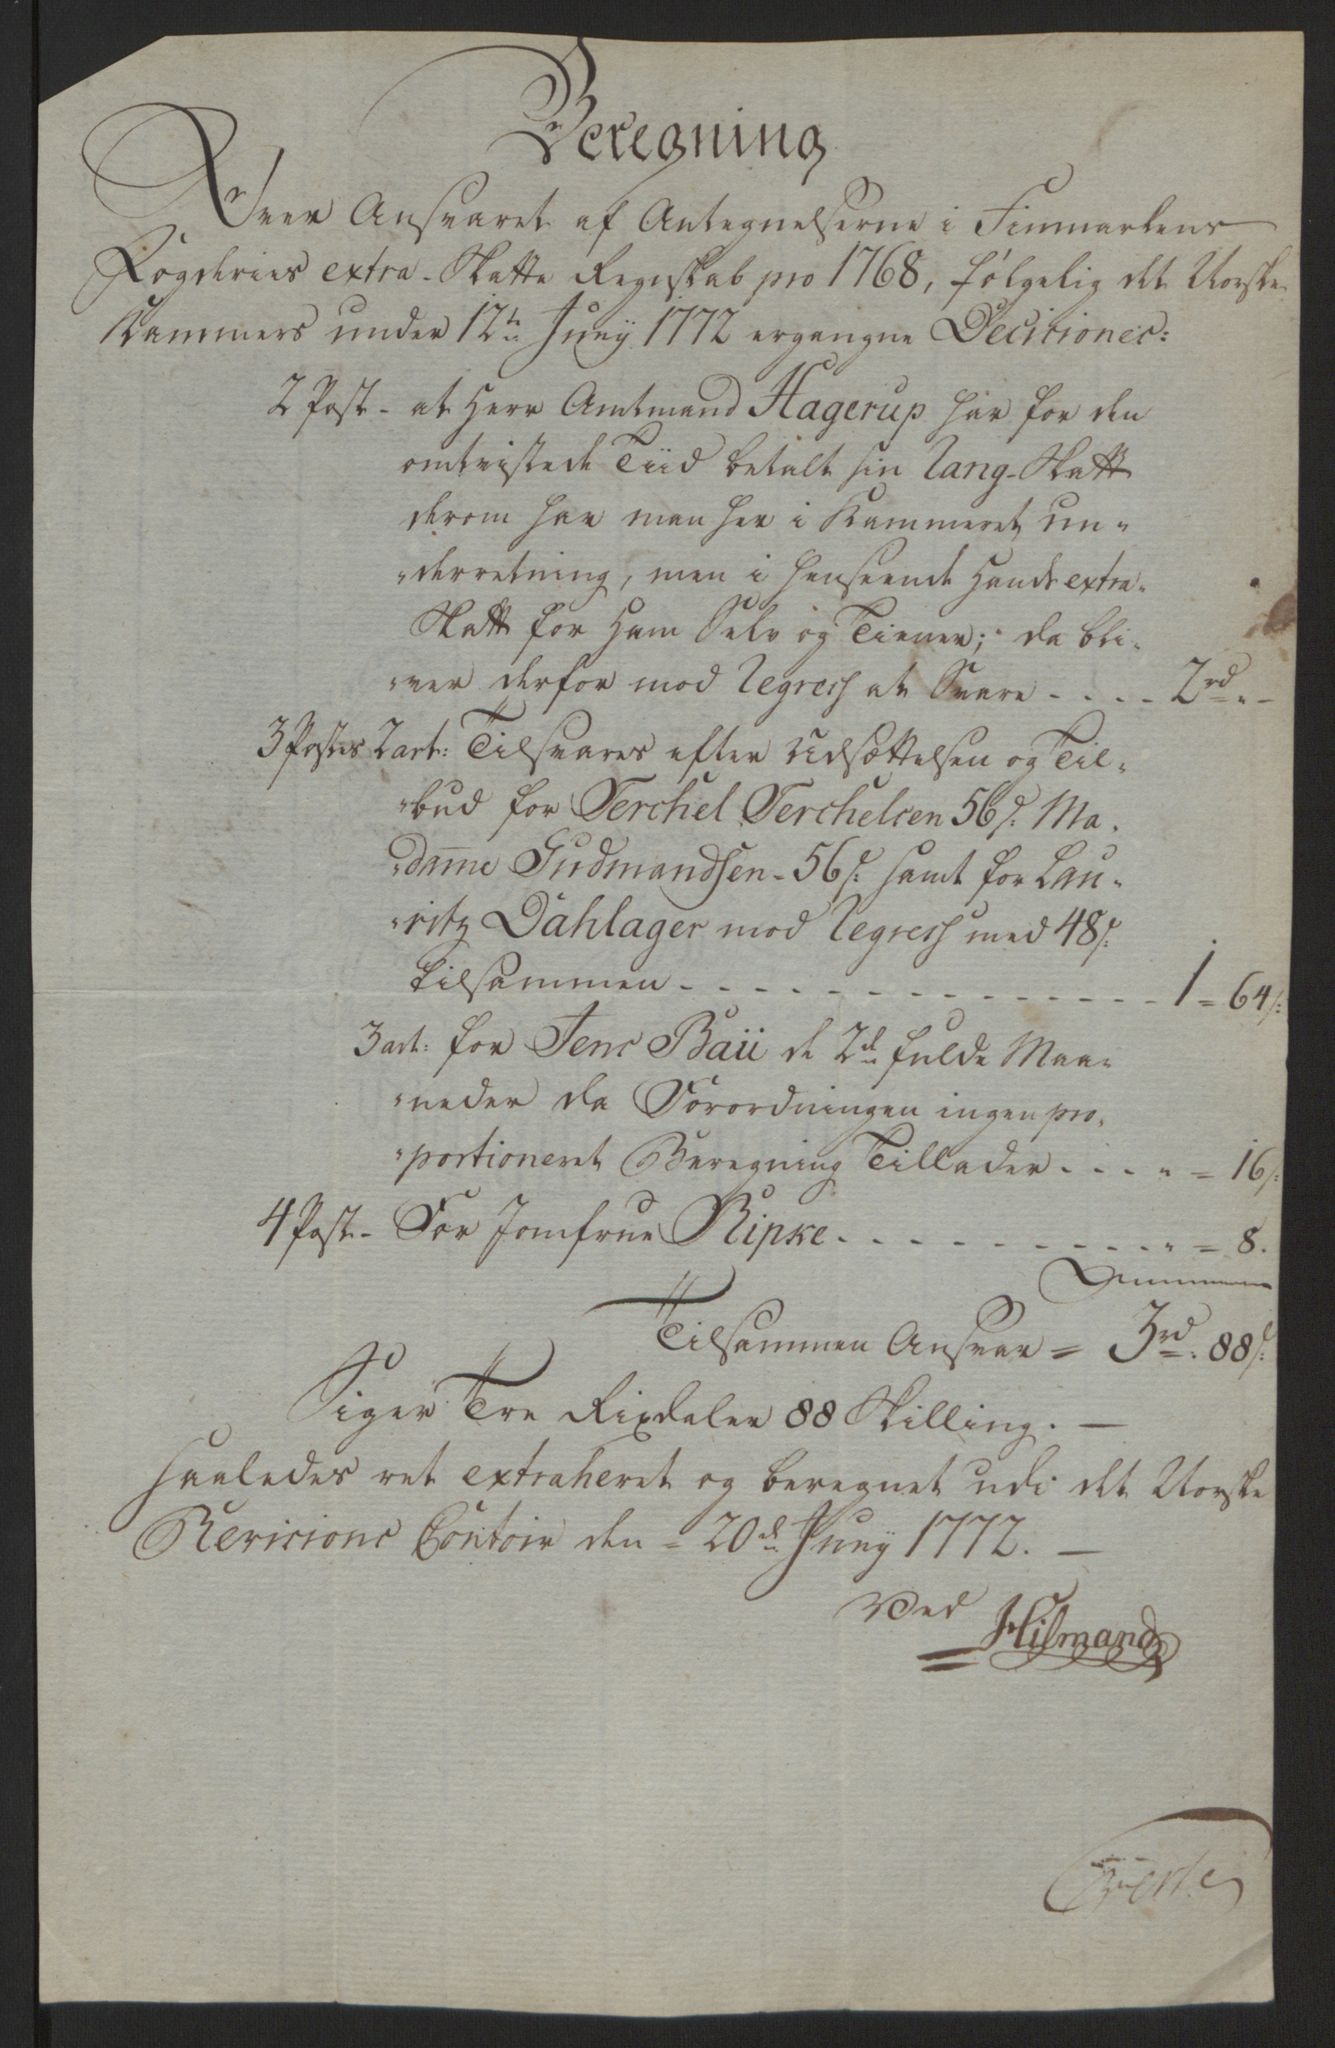 Beregning
Over Ansvaret af Antegnelserne i Finmarkens
Fogderies extra-Skatte Regnskab pro 1768, følgelig det Norske
Kammers under 12te Junij 1772 ergangne Decisiones:
2 Post - at Herr Amtmand Hagerup har for den
omtvistede Tiid betalt sin Rang-Skatt
derom har man her i Kammeret un-
-derretning, men i henseende Hands extra-
Skatt for Ham Selv og Tiener; da bli-
-ver derfor mod Regress at Svare - - - - 2rd " -
3 Postes 2 art: Tilsvares efter Udsættelsen og Til-
-bud for Terchel Terchelsen 56 s: Ma-
-dame Gudmandsen - 56 s: samt for Lau-
-ritz Dahlager mod Regress med 48 s:
tilsammen - - - - - - - - - - - - - - - 1 = 64 s:
3 art: for Jens Baii de 2de fulde Maa-
-neder da Forordningen ingen pro-
-portioneret Beregning Tillader - - - " = 16 s:
4 Post - For Jomfrue Ripke - - - - - - - - - - " = 8.
Tilsammen Ansvar = 3rd. 88 s:
Siger Tre Rixdaler 88 Skilling. —
Saaledes ret extraheret og beregnet udi det Norske
Revisions Contoir den = 20de Junij 1772. —
Ved
Hilmand
Verte